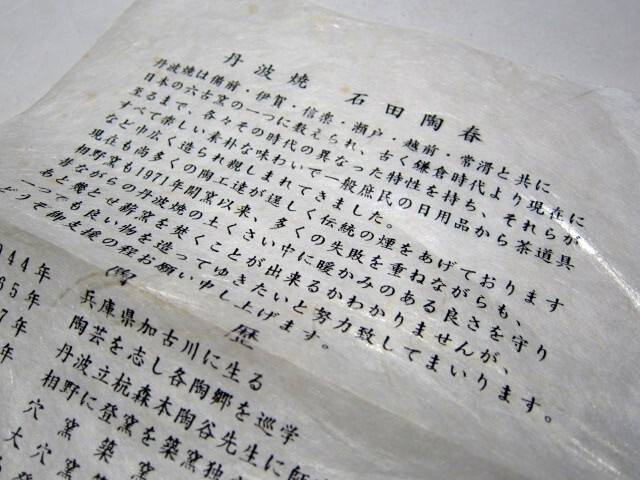 丹波焼 石田陶春
丹波焼は備前・伊賀・信楽・瀬戸・越前・常滑と共に
日本の六古窯の一つに数えられ、古く鎌倉時代より現在に
至るまで、各々その時代の異なった特性を持ち、それらが
すべて楽しい素朴な味わいで一般庶民の日用品から茶道具
など巾広く造られ親しまれてきました。
現在も尚多くの陶工達が逞しく伝統の煙をあげております
相野窯も1971年開窯以来、多くの失敗を重ねながらも、
昔ながらの丹波焼の土くさい中に暖かみのある良さを守り
あと幾とせ薪窯を焚くことが出来るかわかりませんが、
一つでも良い物を造ってゆきたいと努力致してまいります。
どうぞ御支援の程お願い申し上げます。
陶歴
944年 兵庫県加古川に生る
65年 陶芸を志し各陶郷を巡学
7年 丹波立杭森本陶谷先生に師
年 相野に登窯を築窯独
穴窯築窯
大穴窯築